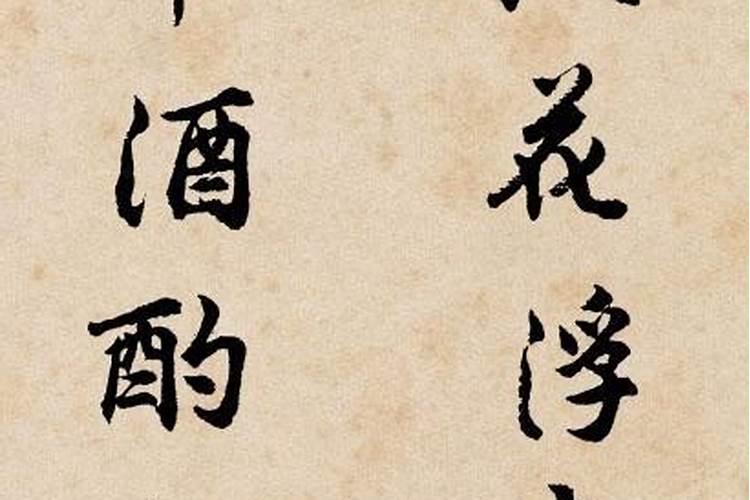 花浮
酒酌